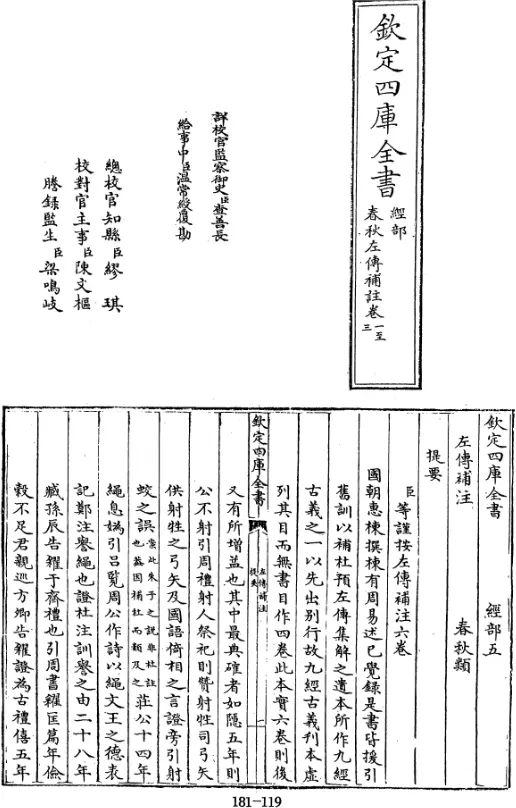 欽定四庫全書
經部
春秋左傳補註卷一至三
詳校官監察御史臣查善長
給事中臣溫常綬覆勘
總校官知縣臣繆琪
校對官主事臣陳文樞
謄錄監生臣梁鳴岐
欽定四庫全書 經部五
左傳補注 春秋類
提要
臣等謹按左傳補注六卷
國朝惠棟撰棟有周易述已覽錄是書皆援引
舊訓以補杜預左傳集解之遺本所作九經
古義之一以先出別行故九經古義刊本虛
列其目而無書目作四卷此本實六卷則後
欽定四庫全書
左傳補注
提要
一
又有所增益也其中最典確者如隱五年則
公不射引周禮射人祭祀則贊射牲司弓矢
供射牲之弓矢及國語倚相之言證旁引射
蛟之誤案此朱子之說非杜註也葢因補杜而類及之莊公十四年
繩息媯引呂覽周公作詩以繩文王之德表
記鄭注譽繩也證杜注訓譽之由二十八年
臧孫辰告糴于齊禮也引周書糴匡篇年儉
穀不足君親巡方卿告糴證為古禮僖五年
181-119